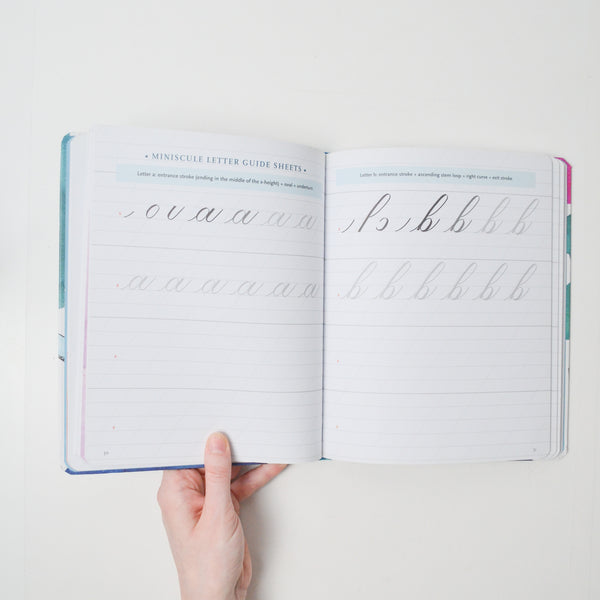 • MINISCULE LETTER GUIDE SHEETS •
Letter a: entrance stroke (ending in the middle of the x-height) + oval + underturn
a a a a
a a a a a a
Letter b: entrance stroke + ascending stem loop + right curve + exit stroke
b b b b
b b b b b b